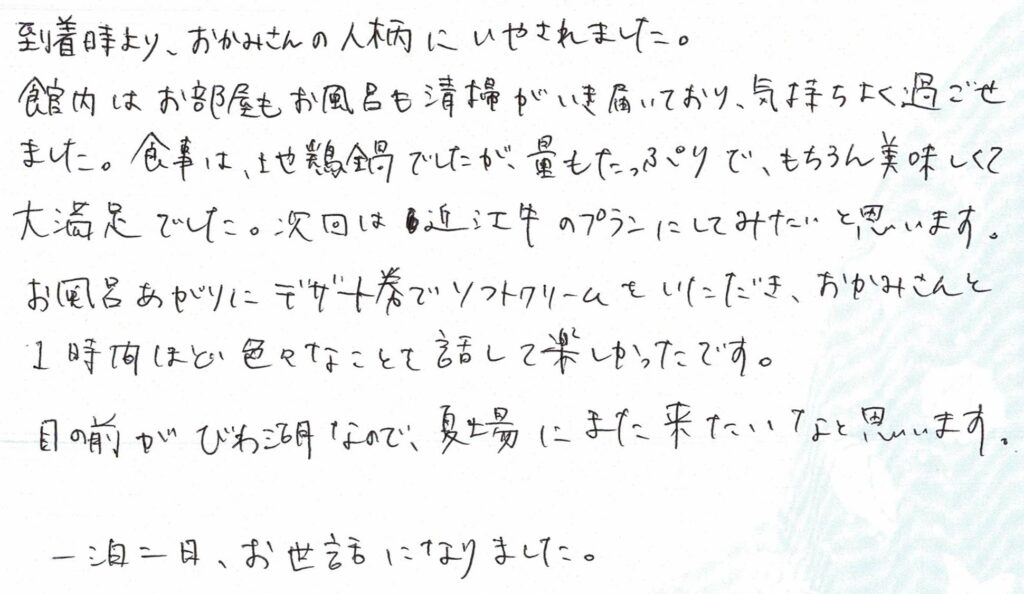 到着時より、おかみさんの人柄にいやされました。
館内はお部屋もお風呂も清掃がいき届いており、気持ちよく過ごせ
ました。食事は、地鶏鍋でしたが、量もたっぷりで、もちろん美味しくて
大満足でした。次回は近江牛のプランにしてみたいと思います。
お風呂あがりにデザート券でソフトクリームをいただき、おかみさんと
1時間ほど色々なことを話して楽しかったです。
目の前がびわ湖なので、夏場にまた来たいなと思います。
一泊二日、お世話になりました。